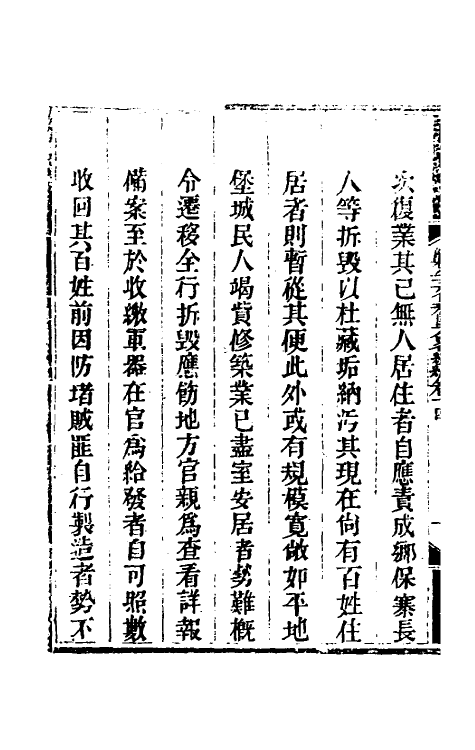 次復業其已無人居住者自應責成鄉保寨長
人等拆毀以杜藏垢納污其現在尚有百姓住
居者則暫從其便此外或有規模寬敞如平地
堡城民人竭貲修築業已盡室安居者勢難概
令遷移全行拆毀應飭地方官親為查看詳報
備案至於收繳軍器在官為給發者自可照數
收回其百姓前因防堵賊匪自行製造者勢不